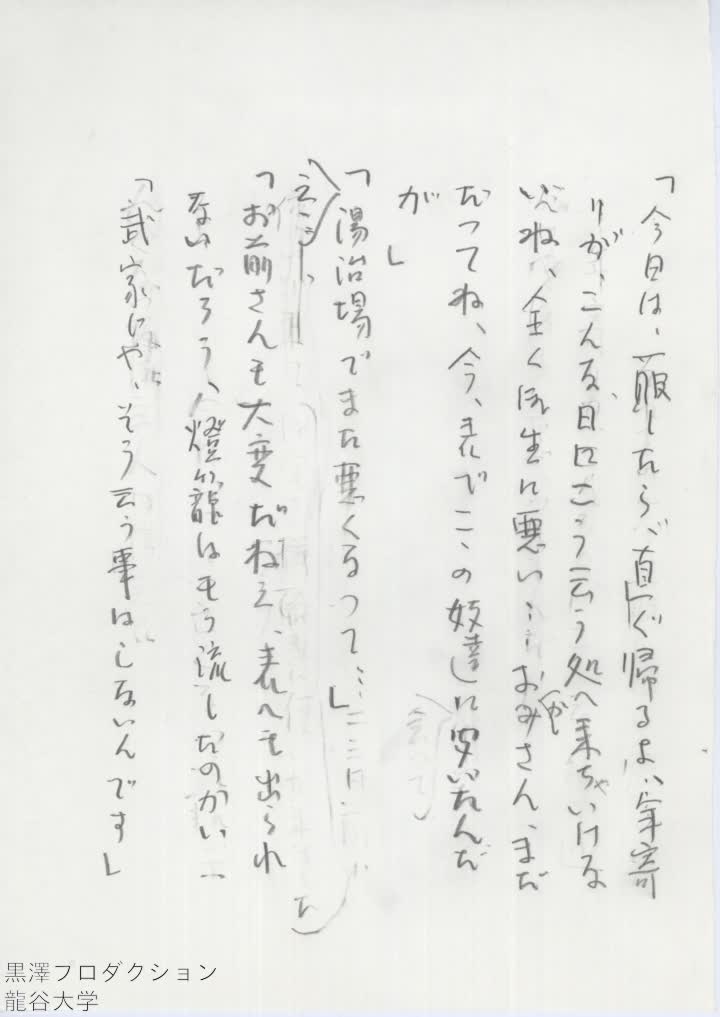 「今日は、一服したら、直ぐ帰るよ、年寄
りが、こんな日にこう云う処へ来ちゃいけな
いね、全く養生に悪い…おみがさん、まだ
だってね、今、表でここの奴達に聞いたんだ
が」
「湯治場でまた悪くなって…」
ええ…
「お前さんも大変だねえ、表へも出られ
ないだろう、燈籠はもう流したのかい」
「武家じゃ、そう云う事はしないんです」
た
黒澤プロダクション
龍谷大学